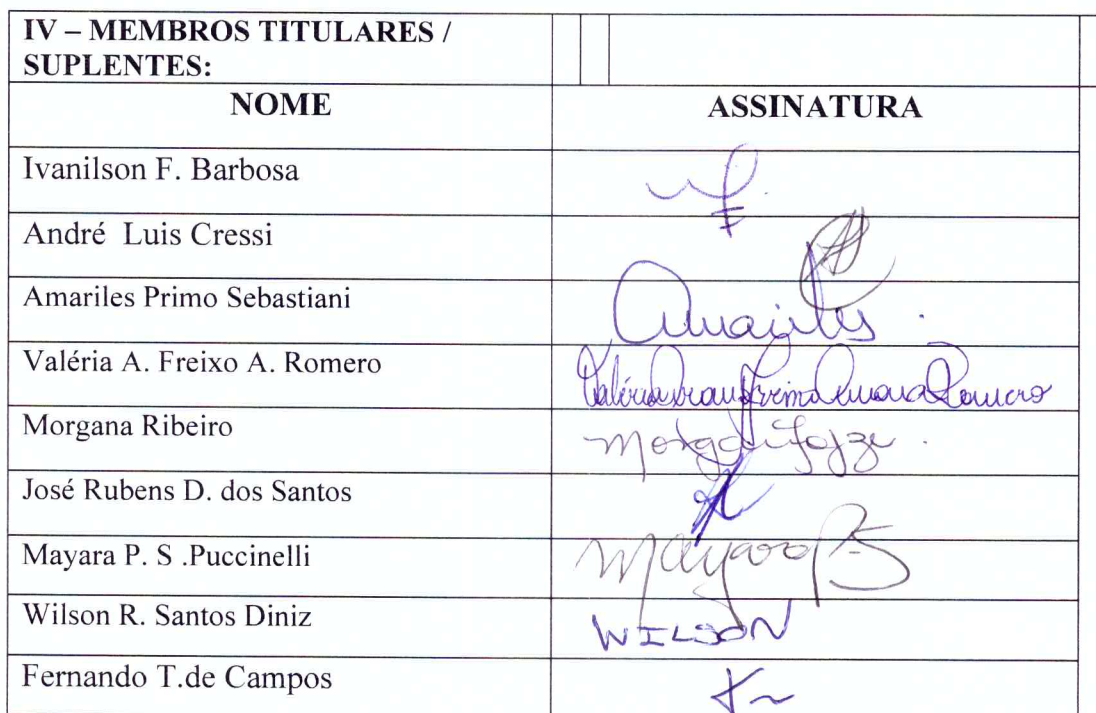 IV – MEMBROS TITULARES /
SUPLENTES:
NOME ASSINATURA
Ivanilson F. Barbosa
André Luis Cressi
Amariles Primo Sebastiani
Valéria A. Freixo A. Romero
Morgana Ribeiro
José Rubens D. dos Santos
Mayara P. S .Puccinelli Mayara
Wilson R. Santos Diniz WILSON
Fernando T.de Campos